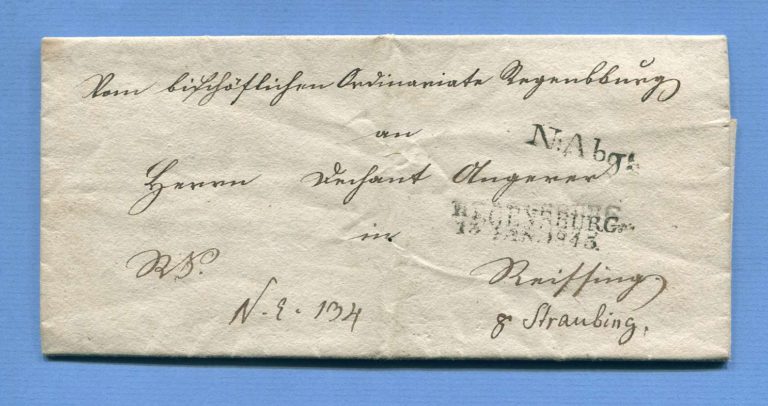 Vom bischöflichen Ordinariate Regensburg
an
N: Abg:
Herrn Dechant Angerer
REGENSBURG
13 JAN. 1845.
in
RS.
Reissing
N. E. 134
p Straubing.